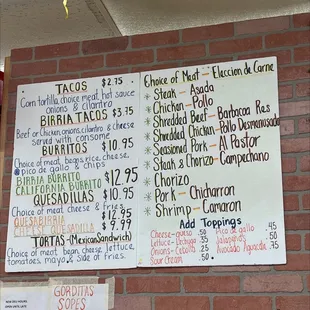 TACOS $2.75
Corn tortilla, choice meat, hot sauce
onions & cilantro
BIRRIA TACOS $3.75
Beef or Chicken, onions, cilantro & cheese
served with consome
BURRITOS $10.95
Choice of meat, beans, rice, cheese,
pico de gallo & chips
BIRRIA BURRITO $12.95
CALIFORNIA BURRITO
QUESADILLAS $10.95
Choice of meat, cheese & fries
QUESABIRRIA $12.95
CHEESE QUESADILLA $9.99
TORTAS (Mexican Sandwich)
Choice of meat, bean, cheese, lettuce
tomatoes, mayo. & Side of fries.
GORDITAS
SOPES
Choice of Meat - Eleccion de Carne
* Steak - Asada
* Chicken - Pollo
* Shredded Beef - Barbacoa Res
* Shredded Chicken - Pollo Desmenusada
* Seasoned Pork - Al Pastor
* Steak & Chorizo - Campechano
* Chorizo
* Pork - Chicharron
* Shrimp - Camaron
Add Toppings
Cheese - queso .50 Pico de gallo .45
Lettuce - Lechuga .35 Jalapeños .50
Onions - Cebolla .25 Avocado Aguacate .75
Sour Cream .50